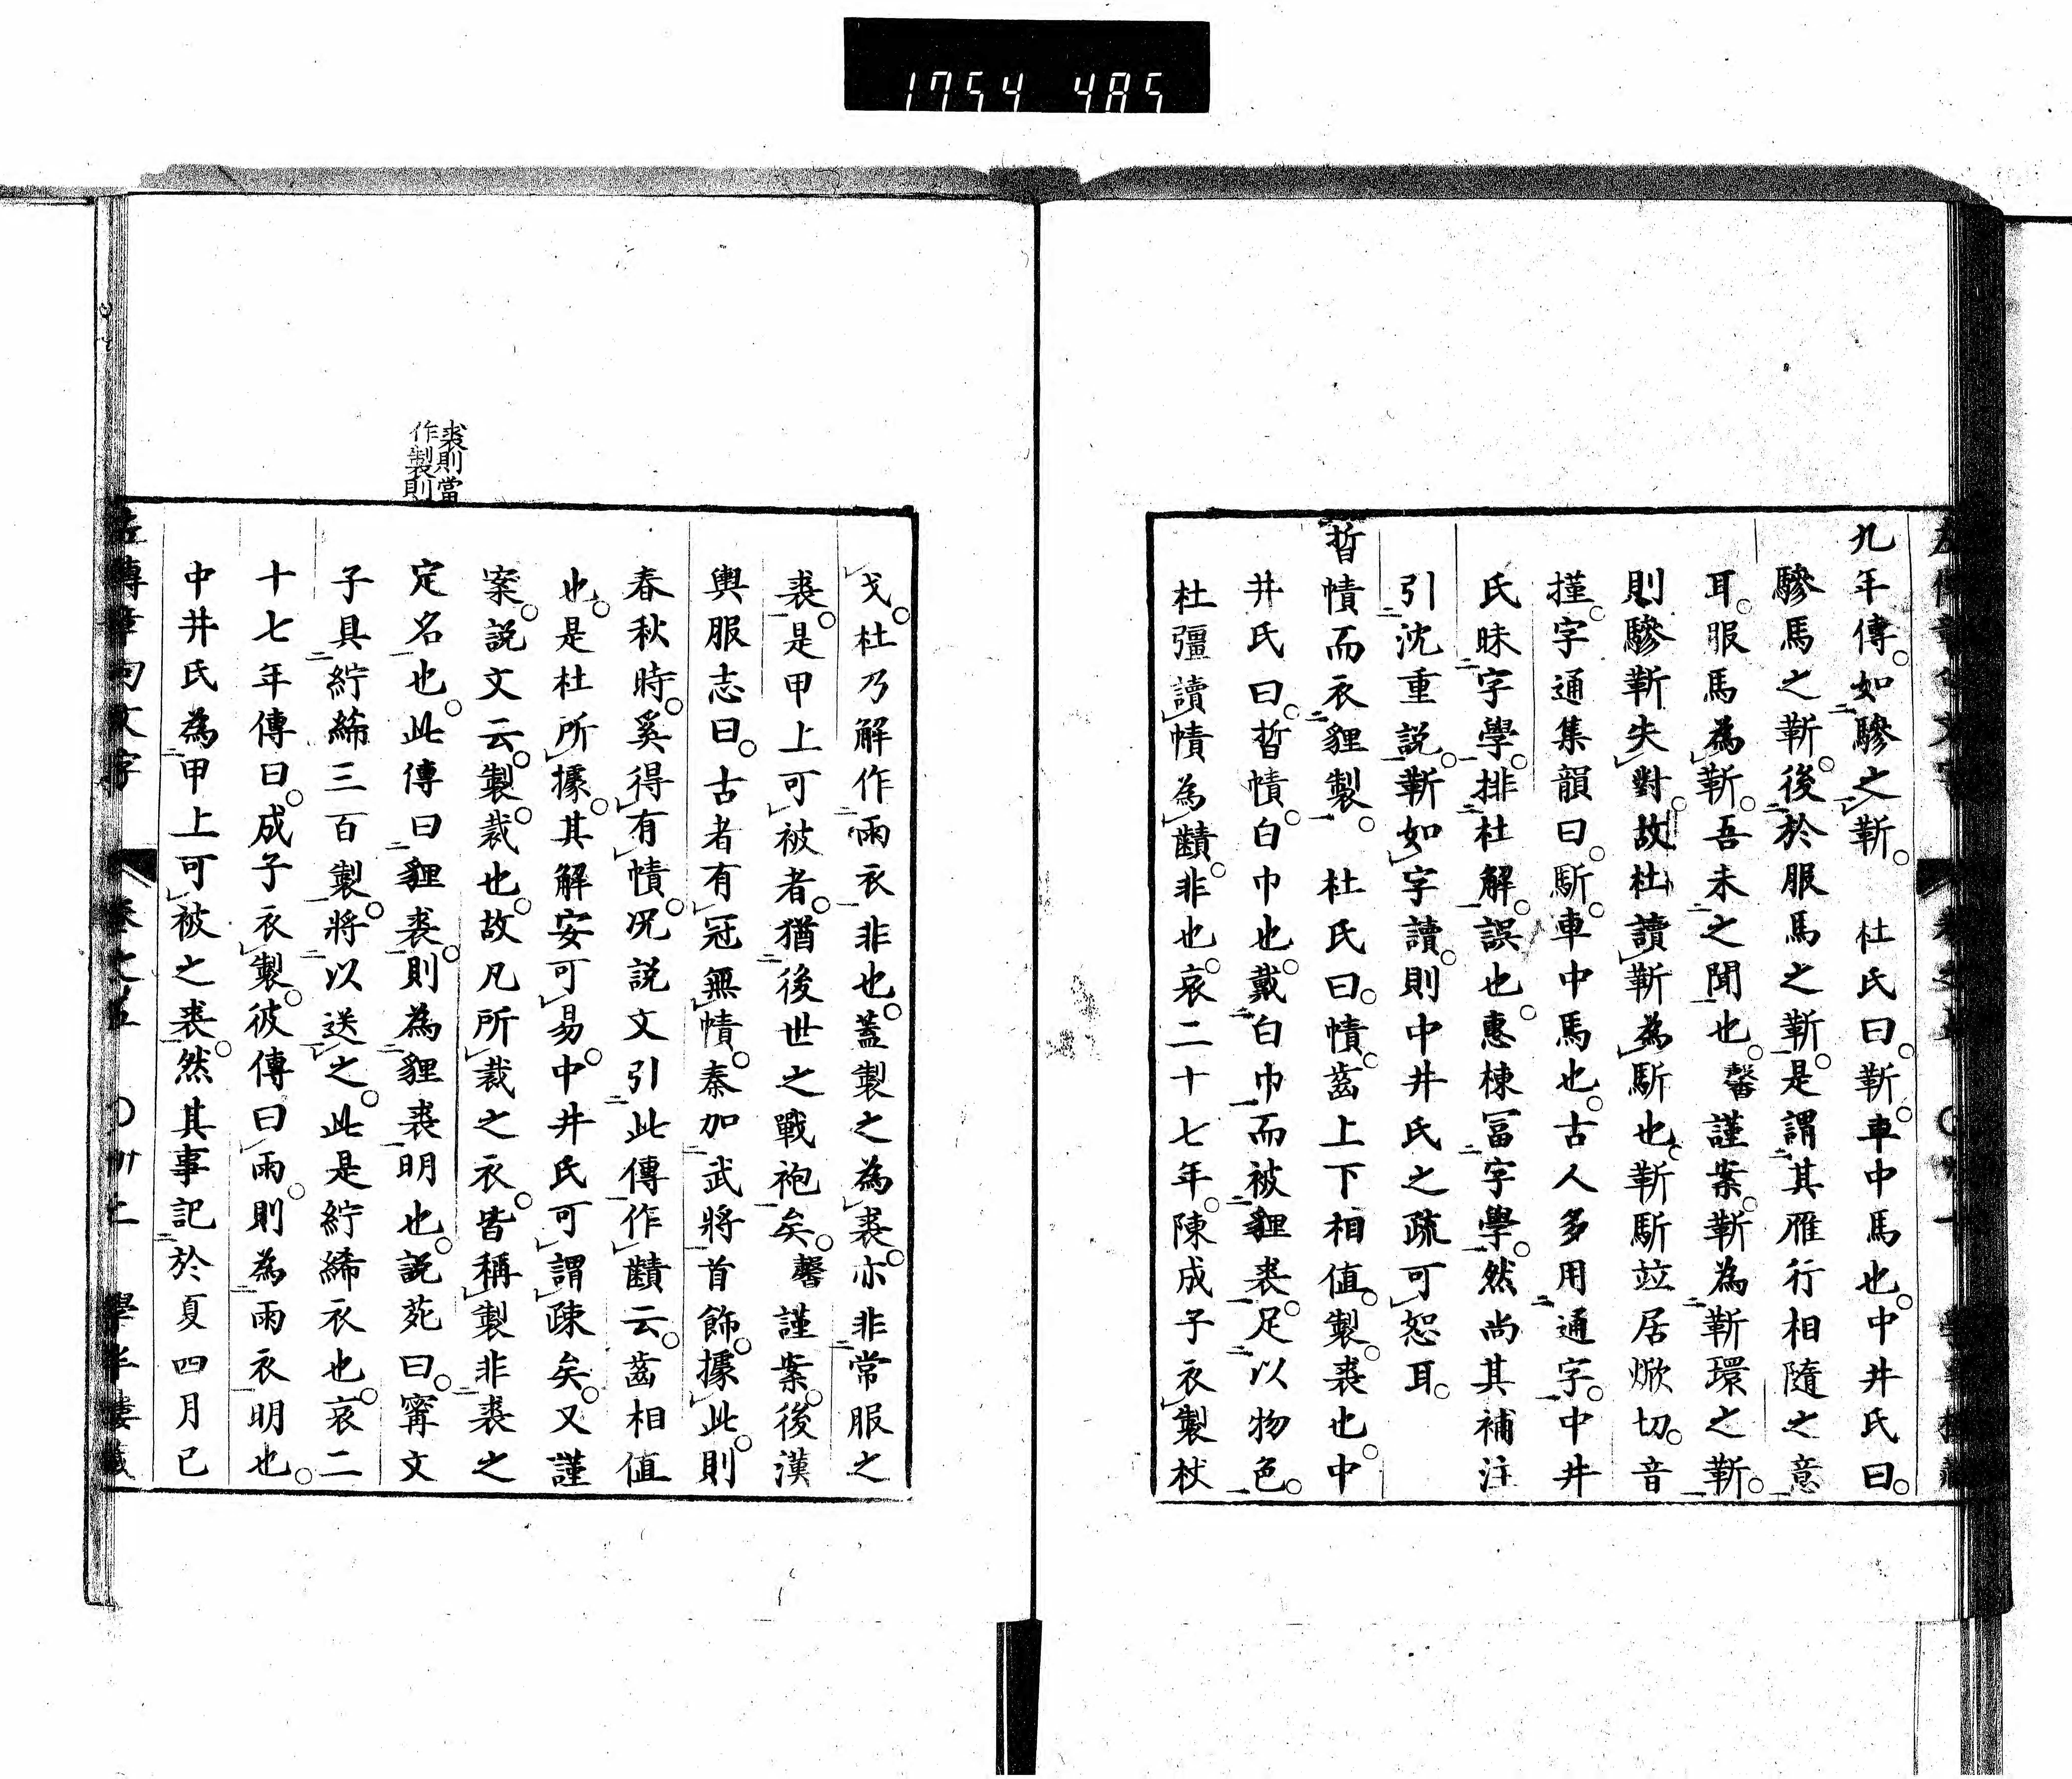 1754 485
九年傳。如驂之靳。 杜氏曰。靳。車中馬也。中井氏曰。
驂馬之靳。後於服馬之靳。是謂其雁行相隨之意
耳。服馬為靳。吾未之聞也。馨謹案。靳為靳環之靳。
則驂靳失對。故杜讀靳為馸也。靳馸竝居焮切。音
撞字通集韻曰。馸。車中馬也。古人多用通字。中井
氏昧字學。排杜解。誤也。惠棟冨字學。然尚其補注
引沈重説。靳如字讀。則中井氏之疏可恕耳。
晢幘而衣貍製。 杜氏曰。幘。齒上下相值。製。裘也。中
井氏曰。晢幘。白巾也。戴白巾而被貍裘。足以物色。
杜彊讀幘為齰。非也。哀二十七年。陳成子衣製杖
戈。杜乃解作雨衣非也。蓋製之為裘。亦非常服之
裘。是甲上可被者。猶後世之戰袍矣。馨謹案。後漢
輿服志曰。古者有冠無幘。秦加武將首飾。據此。則
春秋時。奚得有幘。况説文引此傳作齰云。齒相值
也。是杜所據。其解安可易。中井氏可謂疎矣。又謹
案。説文云。製。裁也。故凡所裁之衣。皆稱製非裘之
定名也。此傳曰貍裘。則為貍裘明也。説苑曰。甯文
子具紵絺三百製。將以送之。此是紵絺衣也。哀二
十七年傳曰。成子衣製。彼傳曰雨。則為雨衣明也。
中井氏為甲上可被之裘。然其事記於夏四月已
裘則當
作製則
左傳章句文字 卷之五 〇卅二 學半樓藏